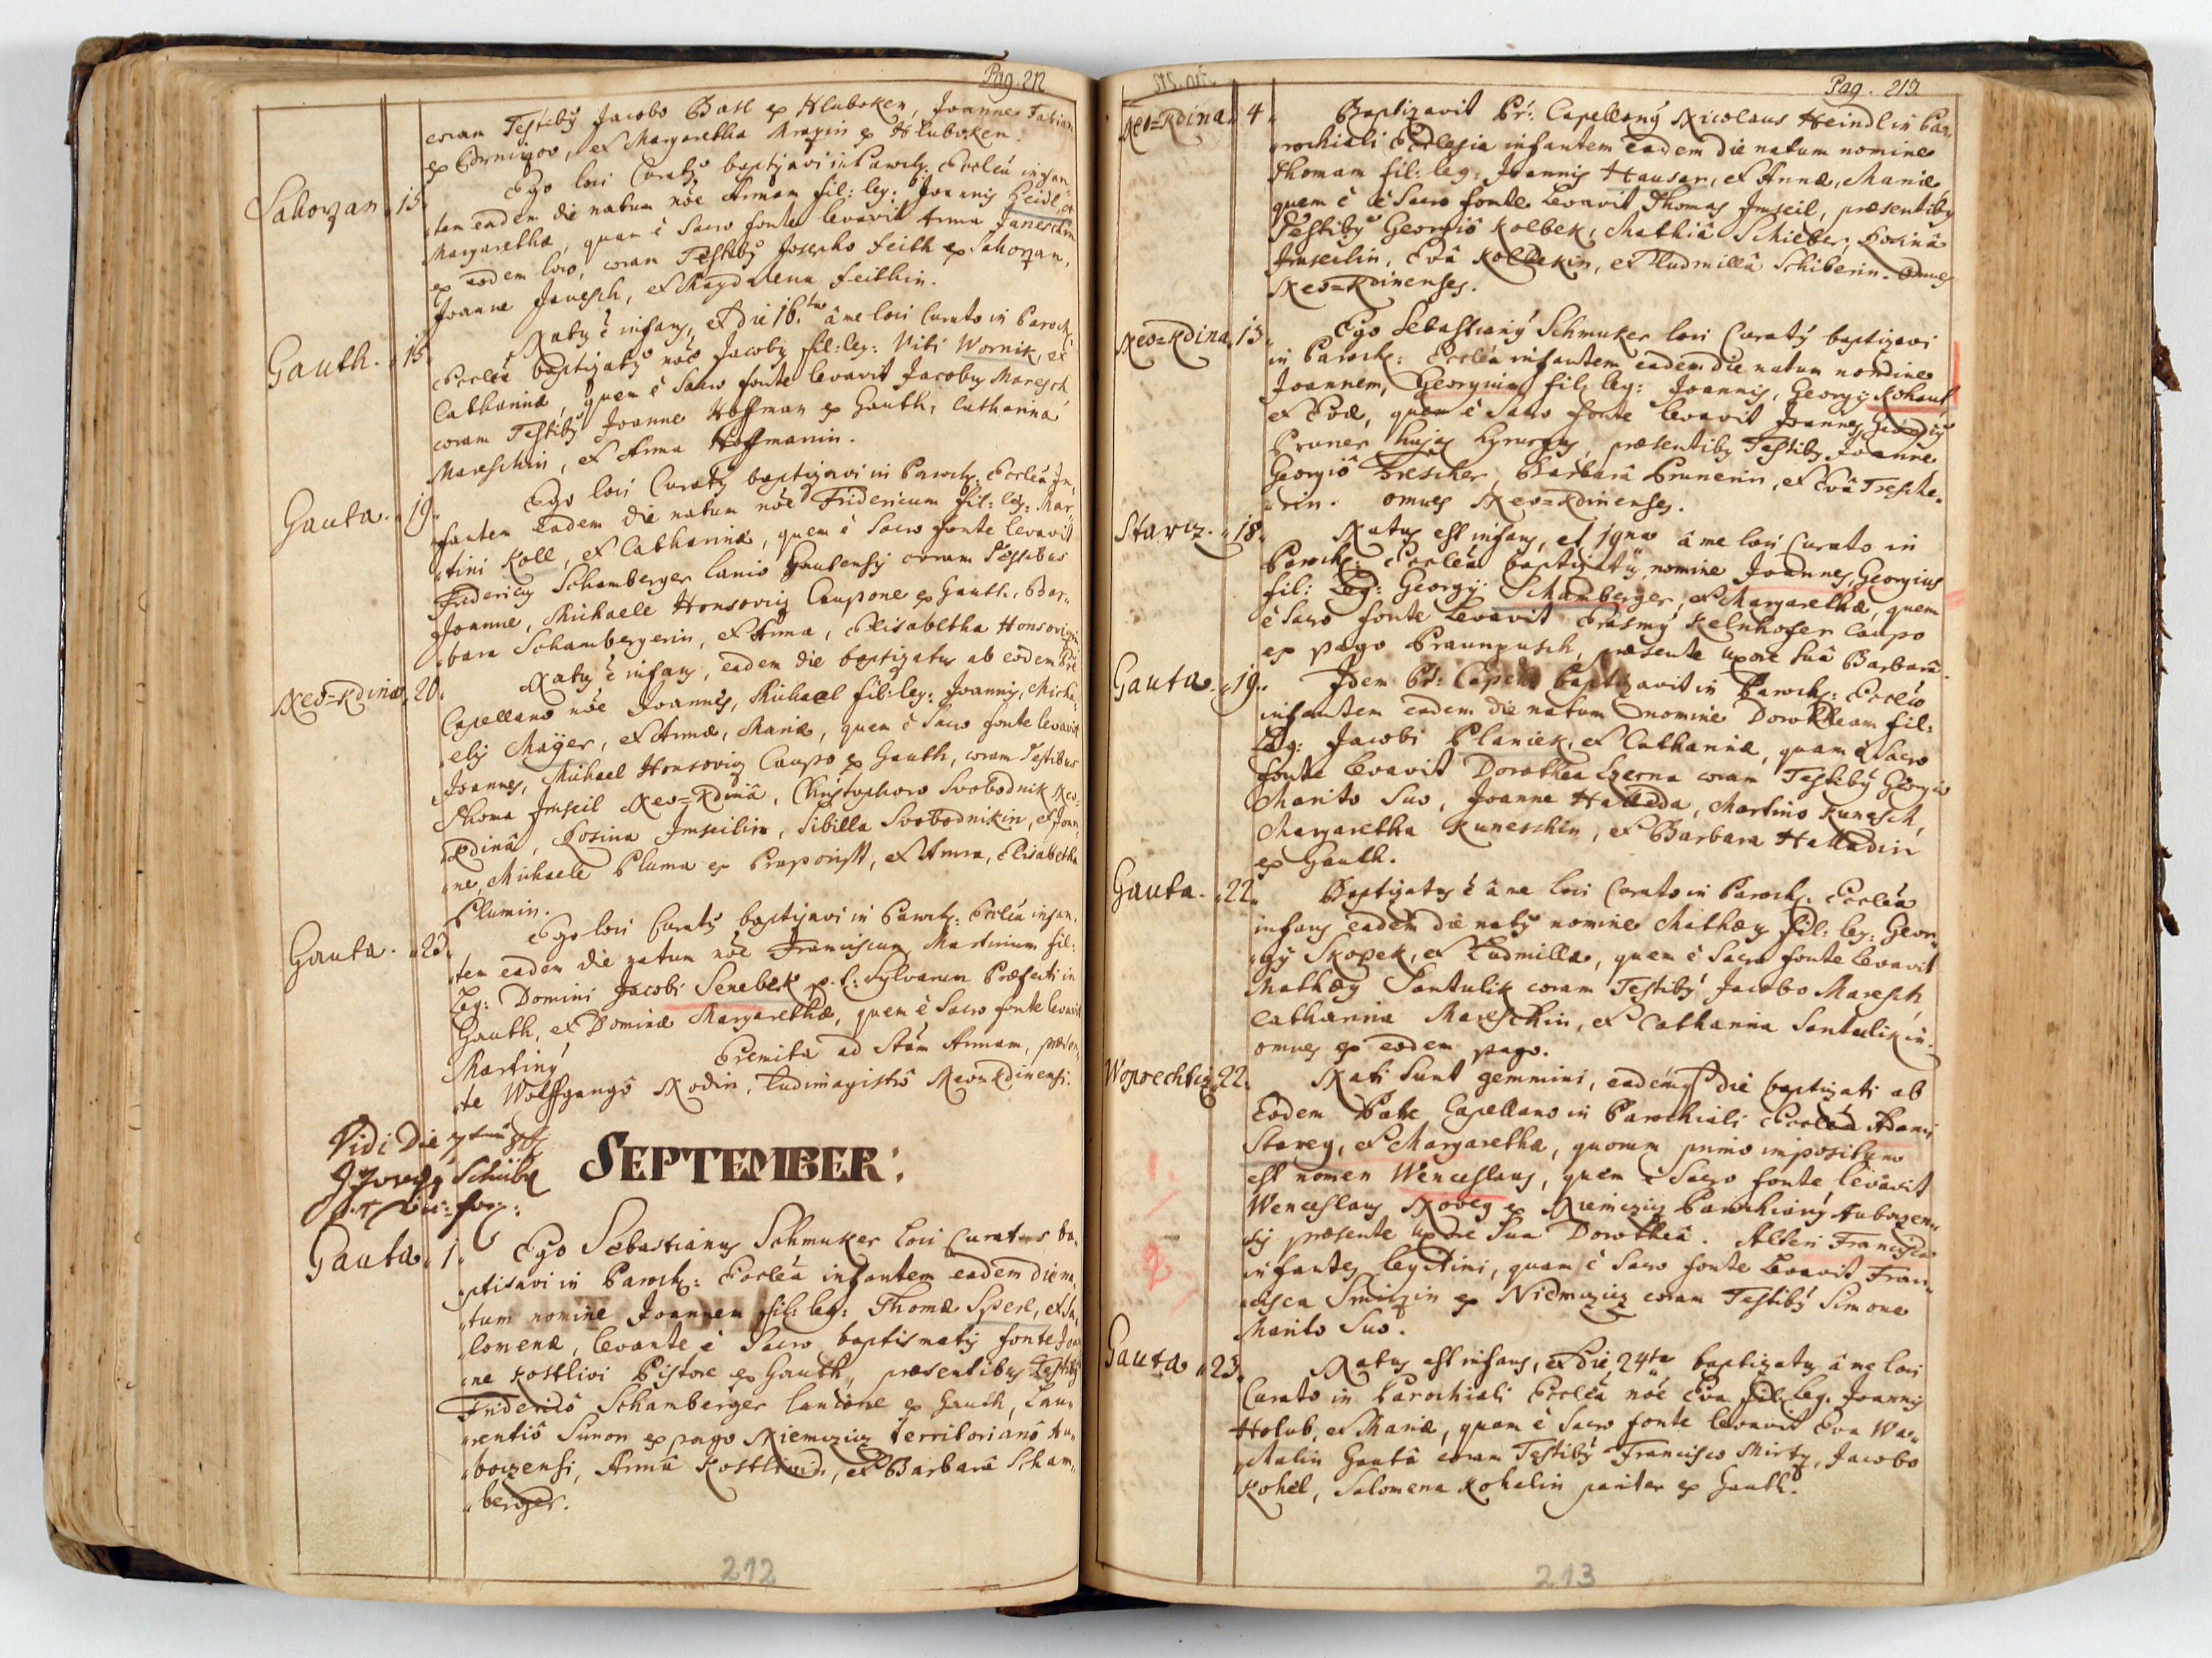 Pag. 212
coram Testibus Jacobo Basl ex Hluboken, Joanne Fabian
ex et Margaretha Mrazin ex Hluboken.
Sahorzan 15. Ego loci Curatus baptizavi in Paroch: Ecclea infan„
„tem eadem die natum nõe Annam fil: leg: Joannis Heidl, et
Margarethæ, quam è Sacro fonte levavit Anna Janeschin
ex eodem loco, coram Testibus Josepho Feith ex Sahorzan,
Joanne Janesch, et Magdalena Feithin.
Gauth. 15. Natus è infans, et die 16.ta â me loci Curato in Paroch:
Ecclea baptizatus nõe Jacobus fil: leg: Viti Wornik, et
Catharinæ, quem è Sacro fonte levavit Jacobus Maresch,
coram Testibus Joanne Hoffman ex Gauth, Catharina
Mareschin, et Anna Hoffmanin.
Gauta. 19. Ego loci Curatus baptizavi in Paroch: Ecclea In„
„fantem eadem die natum nõe Fridericum fil: leg: Mar„
„tini Koll, et Catharinæ, quem è Sacro fonte levavit
Fridericus Schamberger lanio Gautensis coram Testibus
Joanne, Michaele Honsovig Caupone ex Gauth, Bar„
„bara Schambergerin, et Anna, Elisabetha Honsovigin
Neo=Kdina 20. Natus è infans, eadem die baptizatus ab eodem Pre
Capellano nõe Joannes, Michael fil: leg: Joannis, Micha„
„elis Maÿer, et Annæ, Mariæ, quem è Sacro fonte levavit
Joannes, Michael Honsovig Caupo ex Gauth, coram Testibus
Thoma Imseil Neo=Kdinâ, Christophoro Svobodnik Neo=
Kdinâ, Rosina Imseilin, Sibilla Svobodnikin, et Joan„
„ne, Michaele Pluma ex et Anna, Elisabetha
Plumin.
Gauta. 23. Ego loci Curatus baptizavi in Paroch: Ecclea infan„
„tem eadem die natum nõe Franciscum Martinum fil:
Leg: Domini Jacobi Senebek p. t: Sylvarum Præfecti in
Gauth, et Dominæ Margarethæ, quem è Sacro fonte levavit
Martinus Eremita ad Stam Annam, præsen„
„te Wolffgangô Nodin, Ludimagistrô Neo=Kdinensi.
Vidi Die
SEPTEMBER:
Gauta 1. Ego Sebastianus Schmuker Loci Curatus ba„
„ptisavi in Paroch: Ecclea infantem eadem die na„
„tum nomine Joannem fil: leg: Thomæ Sperl, et Sa„
„lomenæ, levante è Sacro baptismatis fonte Joan
„ne Kostlivi Pistore ex Gauth, præsentibus Testibus
Fridericô Schamberger lanione ex Gauth, Lau„
„rentiô Simon ex pago Niemczicz territorianô Au„
„borzensi, Annâ Kostlivin, et Barbarâ Scham„
„berger.
212
Pag. 213
Neo=Kdina. 4. Baptizavit Pr: Capellanus Nicolaus Heindl in Pa„
„rochiali Ecclesia infantem eadem die natum nomine
Thomam fil: leg: Joannis Hauser, et Annæ, Mariæ,
quem è è Sacro fonte Levavit Thomas Imseil, præsentibus
Testibus Georgiô Kolbek, Mathiâ Schieber, Rosinâ
Imseilin, Evâ Kolbekin, et Ludmillâ Schiberin. Omnes
Neo=Kdinenses.
Neo=Kdina. 13. Ego Sebastianus Schmuker loci Curatus baptizavi
in Paroch: Ecclea infantem eadem die natum nomine
Joannem, Georgium fil: leg: Joannis, Georgij Kohaut,
et Evæ, quem è Sacro fonte levavit Joannes Georgius
Bruner hujas præsentibus Testibus Joanne
Georgiô Trescher, Barbarâ Brunerin, et Evâ Tresche„
„rin. omnes Neo=Kdinenses.
Starcz. 18. Natus est infans, et 19na â me loci Curato in
Paroch: Ecclea baptizatus, nomine Joannes, Georgius
fil: Leg: Georgij Schamberger, et Margarethæ, quem
è Sacro fonte Levavit Erasmus Kelnhofer Caupo
ex pago Praunpusch, præsente uxore suâ Barbarâ.
Gauta. 19. Idem Pr: Capell: baptizavit in Paroch: Ecclea
infantem eadem die natum nomine Dorotheam fil:
Leg: Jacobi Planiek, et Catharinæ, quam è Sacro
fonte levavit Dorothea Czerna coram Testibus Georgio
Marito Suo, Joanne Hallada, Martino Kunesch,
Margaretha Kuneschin, et Barbara Halladin
ex Gauth.
Gauta. 22. Baptizatus è â me loci Curato in Paroch: Ecclea
infans eadem die natus nomine Mathæus fil: leg: Geor„
„gij Skopek, et Ludmillæ, quem è Sacro fonte Levavit
Mathæus Santulik coram Testibus Jacobo Maresch,
Catharina Mareschin, et Catharina Santulikin.
omnes ex eodem pago.
Woprechticz 22. Nati sunt gemmini, eademque die baptizati ab
Eodem Patre Capellano in Parochiali Ecclea Adami
Starey, et Margarethæ, quorum primo impositum
est nomen Wenceslaus, quem è Sacro fonte levavit
Wenceslaus Novey ex Niemczicz Parochianus Auborzen„
„sis præsente uxore sua Dorotheâ. Alteri Francisca
infantes legitimi, quam è Sacro fonte Levavit Fran„
„cisca ex Niemczicz coram Testibus Simone
Marito Suo.
1.
2
Gauta 23. Natus est infans, et die 24ta baptizatus â me loci
Curato in Parochiali Ecclea nõe Eva fil: Leg. Joannis
Holub, et Mariæ, quam è Sacro fonte levavit Eva Wa„
Gautâ coram Testibus Francisco Jacobo
Kohel, Salomena Kohelin pariter ex Gauth.
213